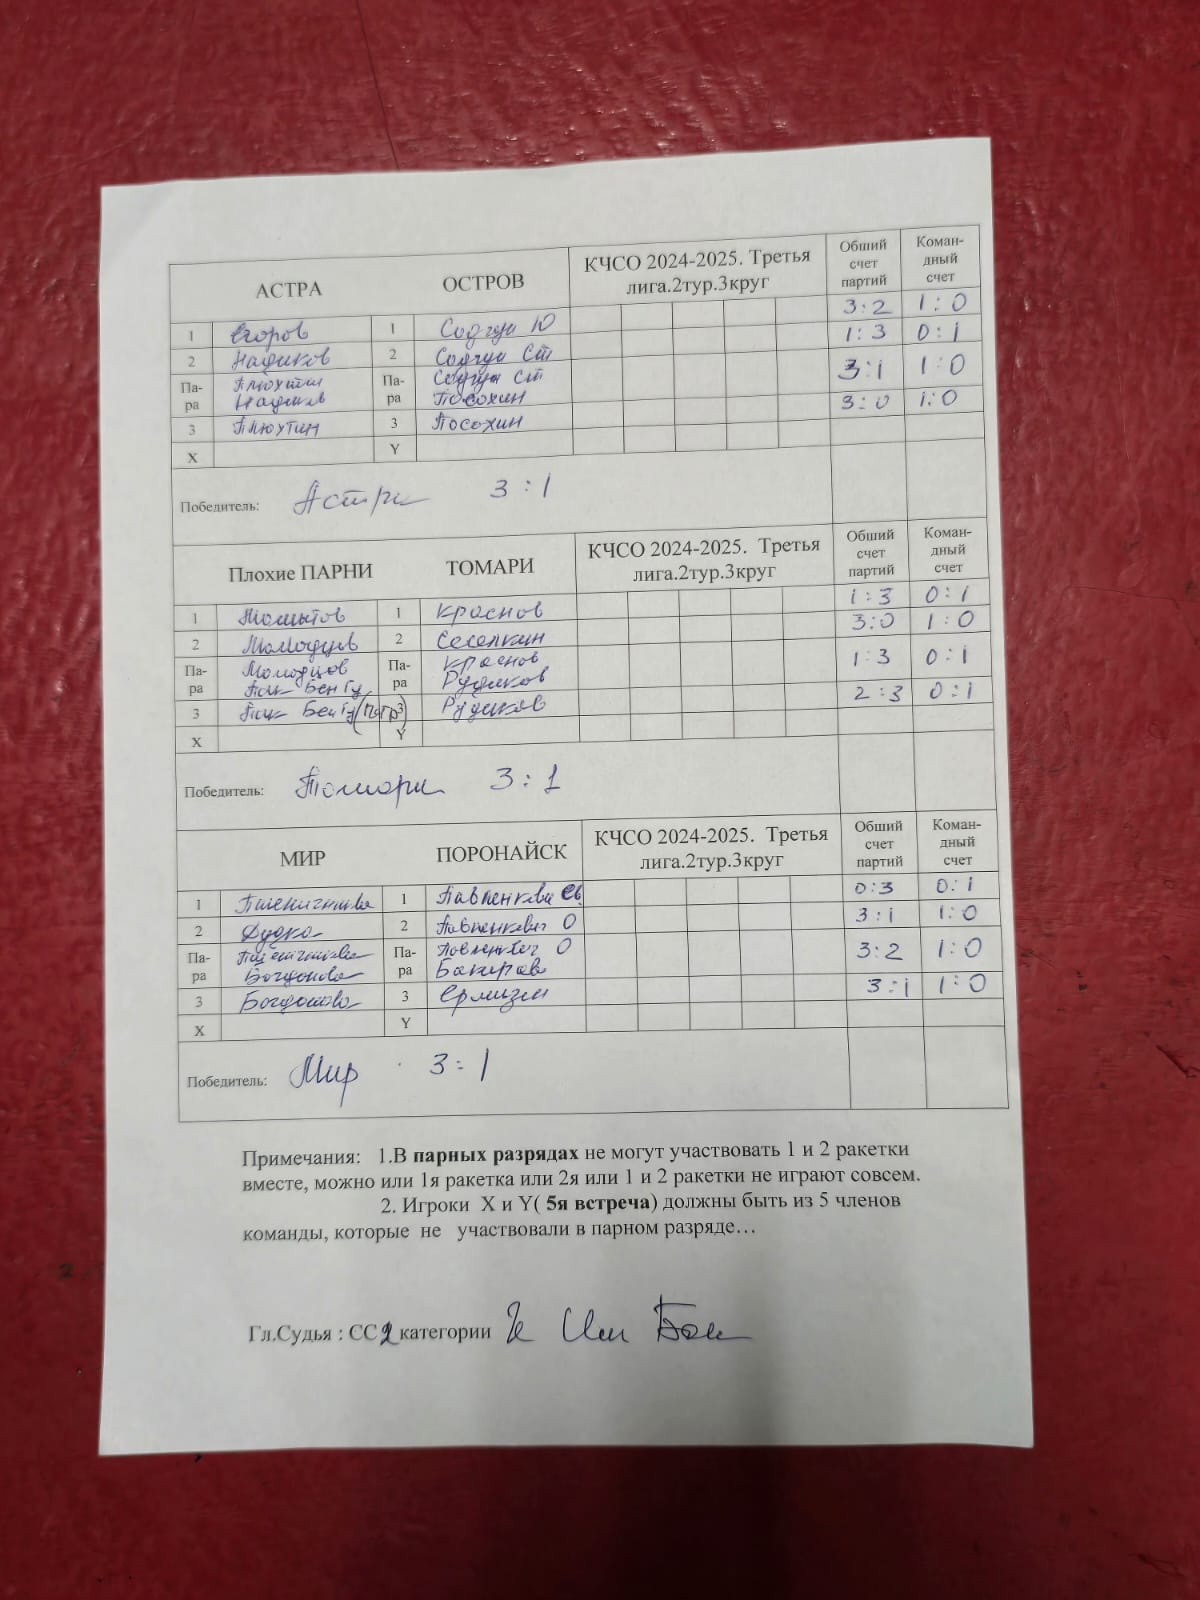 АСТРА ОСТРОВ КЧСО 2024-2025. Третья лига.2тур.3круг Обший счет партий Коман-дный счет
3:2 1:0
1 Егоров 1 Содгун Ю 1:3 0:1
2 Надиков 2 Содгун Ст
Па-ра Плюхтин Па-ра Содгун Ст 3:1 1:0
Надиков Посохин 3:0 1:0
3 Плюхтин 3 Посохин
X Y
Победитель: Астра 3:1
Плохие ПАРНИ ТОМАРИ КЧСО 2024-2025. Третья лига.2тур.3круг Обший счет партий Коман-дный счет
1:3 0:1
1 1 Краснов 3:0 1:0
2 2
Па-ра Молодцов Па-ра Краснов 1:3 0:1
Пак Бен Гу Рудаков 2:3 0:1
3 Пак Бен Гу (Пётр) 3 Рудаков
X Y
Победитель: Томари 3:1
МИР ПОРОНАЙСК КЧСО 2024-2025. Третья лига.2тур.3круг Обший счет партий Коман-дный счет
0:3 0:1
1 Пшеничникова 1 Павленкович Ев 3:1 1:0
2 Дудко 2 Павленкович О
Па-ра Пшеничникова Па-ра Павленкович О 3:2 1:0
Богданова 3:1 1:0
3 Богданова 3
X Y
Победитель: Мир 3:1
Примечания: 1.В парных разрядах не могут участвовать 1 и 2 ракетки
вместе, можно или 1я ракетка или 2я или 1 и 2 ракетки не играют совсем.
2. Игроки X и Y( 5я встреча) должны быть из 5 членов
команды, которые не участвовали в парном разряде…
Гл.Судья : СС2 категории